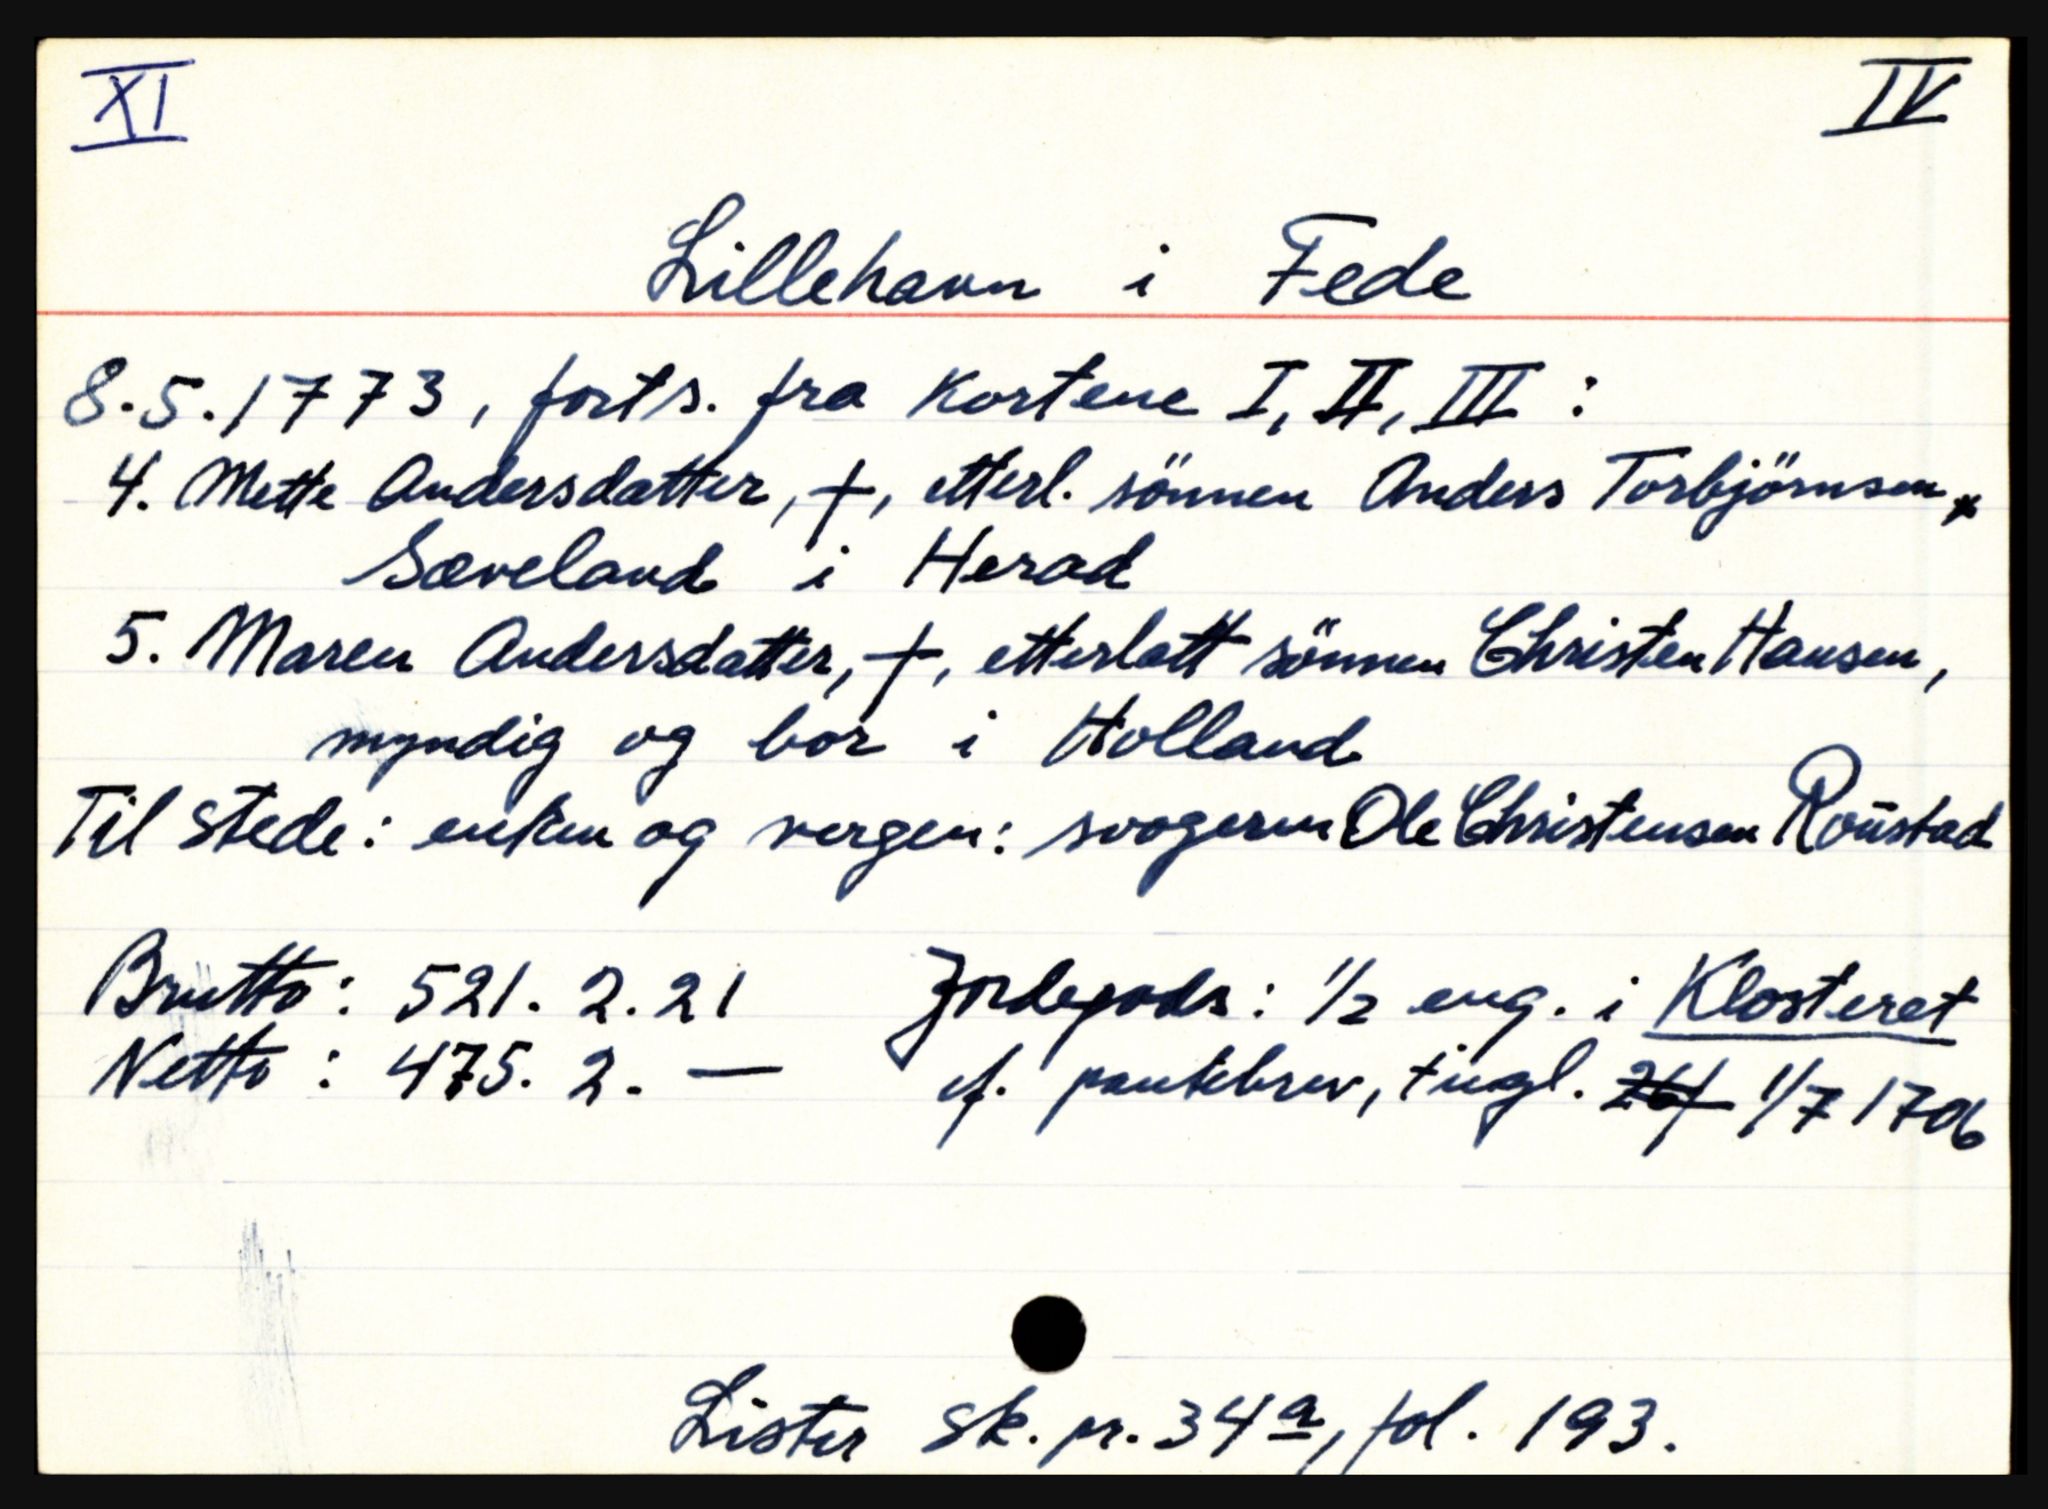 XI IV
Lillehavn i Fede
8.5.1773, forts. fra kortene I, II, III :
4. Mette Andersdatter, †, etterl. sönnen Anders Torbjörnsen,
Sæveland i Herad
5. Maren Andersdatter, †, etterlatt sönnen Christen Hansen,
myndig og bor i Holland
Til stede: enken og vergen: svogeren Ole Christensen Roüstad
Brutto: 521. 2. 21 Jordegods: 1/2 eng. i Klosteret
Netto : 475. 2. — cf. pantebrev, tingl. 1/7 1706
Lister sk. pr. 34a, fol. 193.